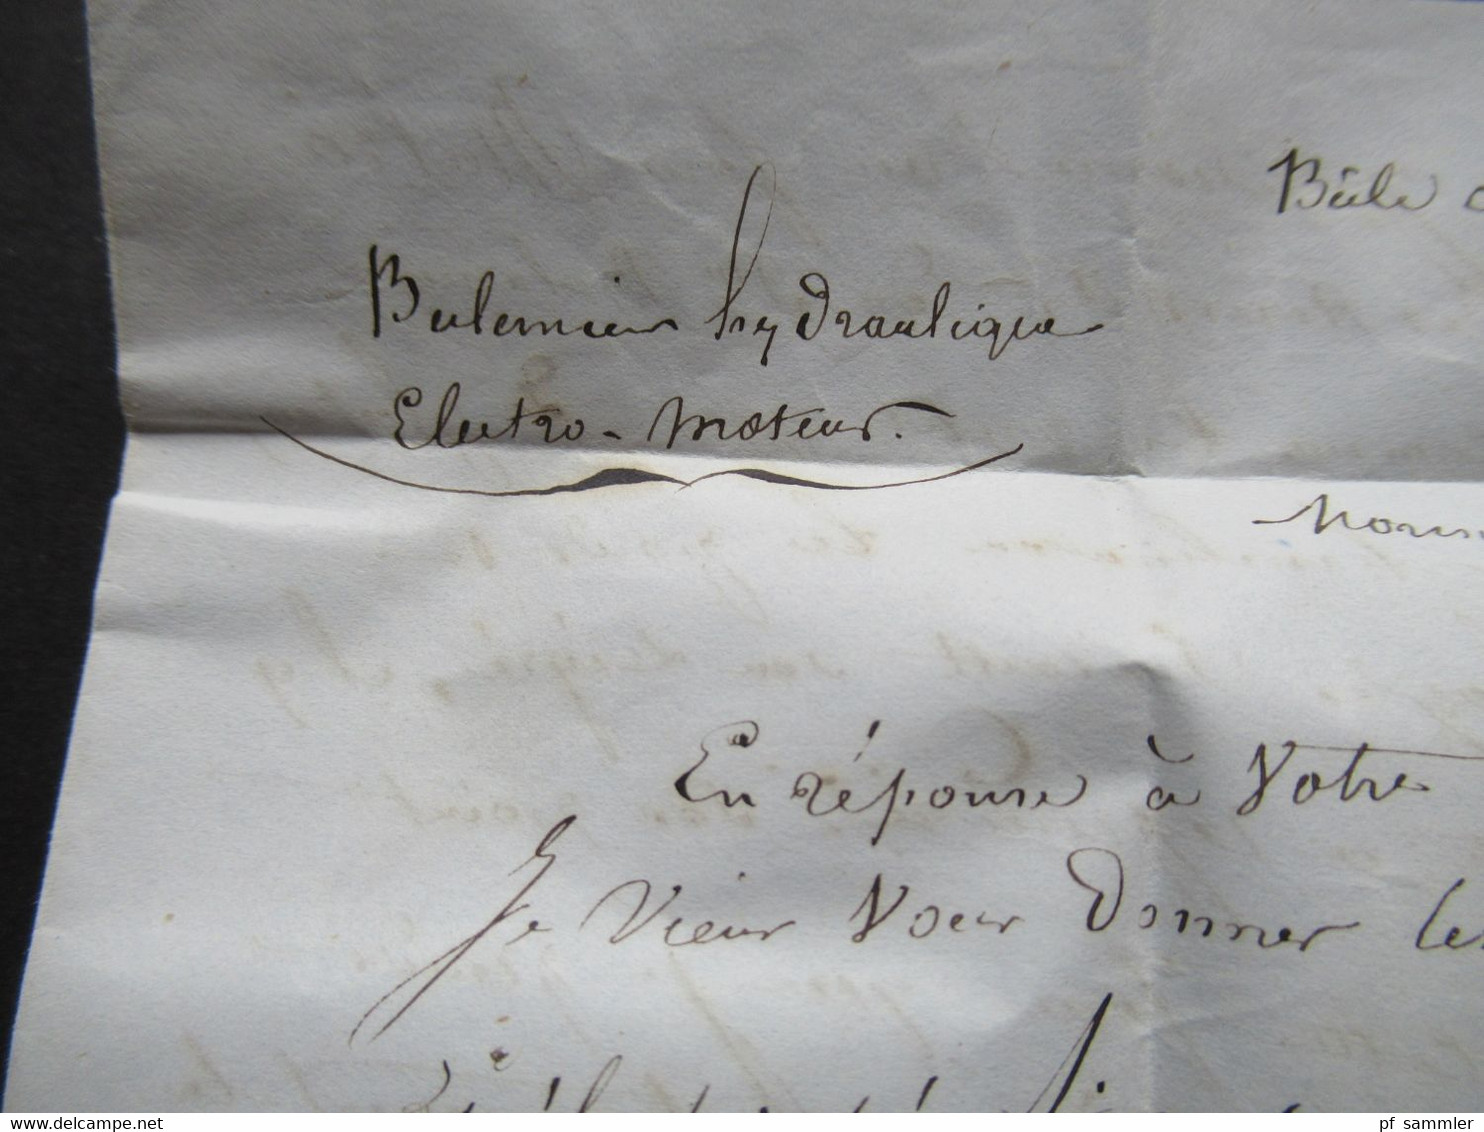 Bâle
Balancier hydraulique
Electro-Moteur.
En réponse à Votre
Je viens Vous Donner les
pf_sammler